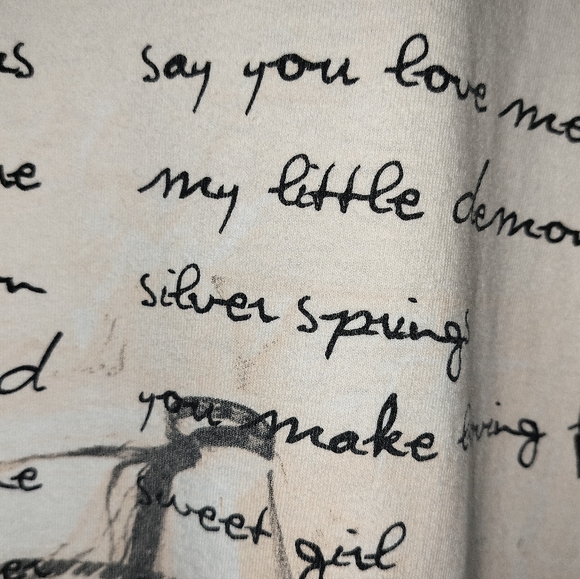 say you love me
my little demon
silver springs
you make loving f
sweet girl